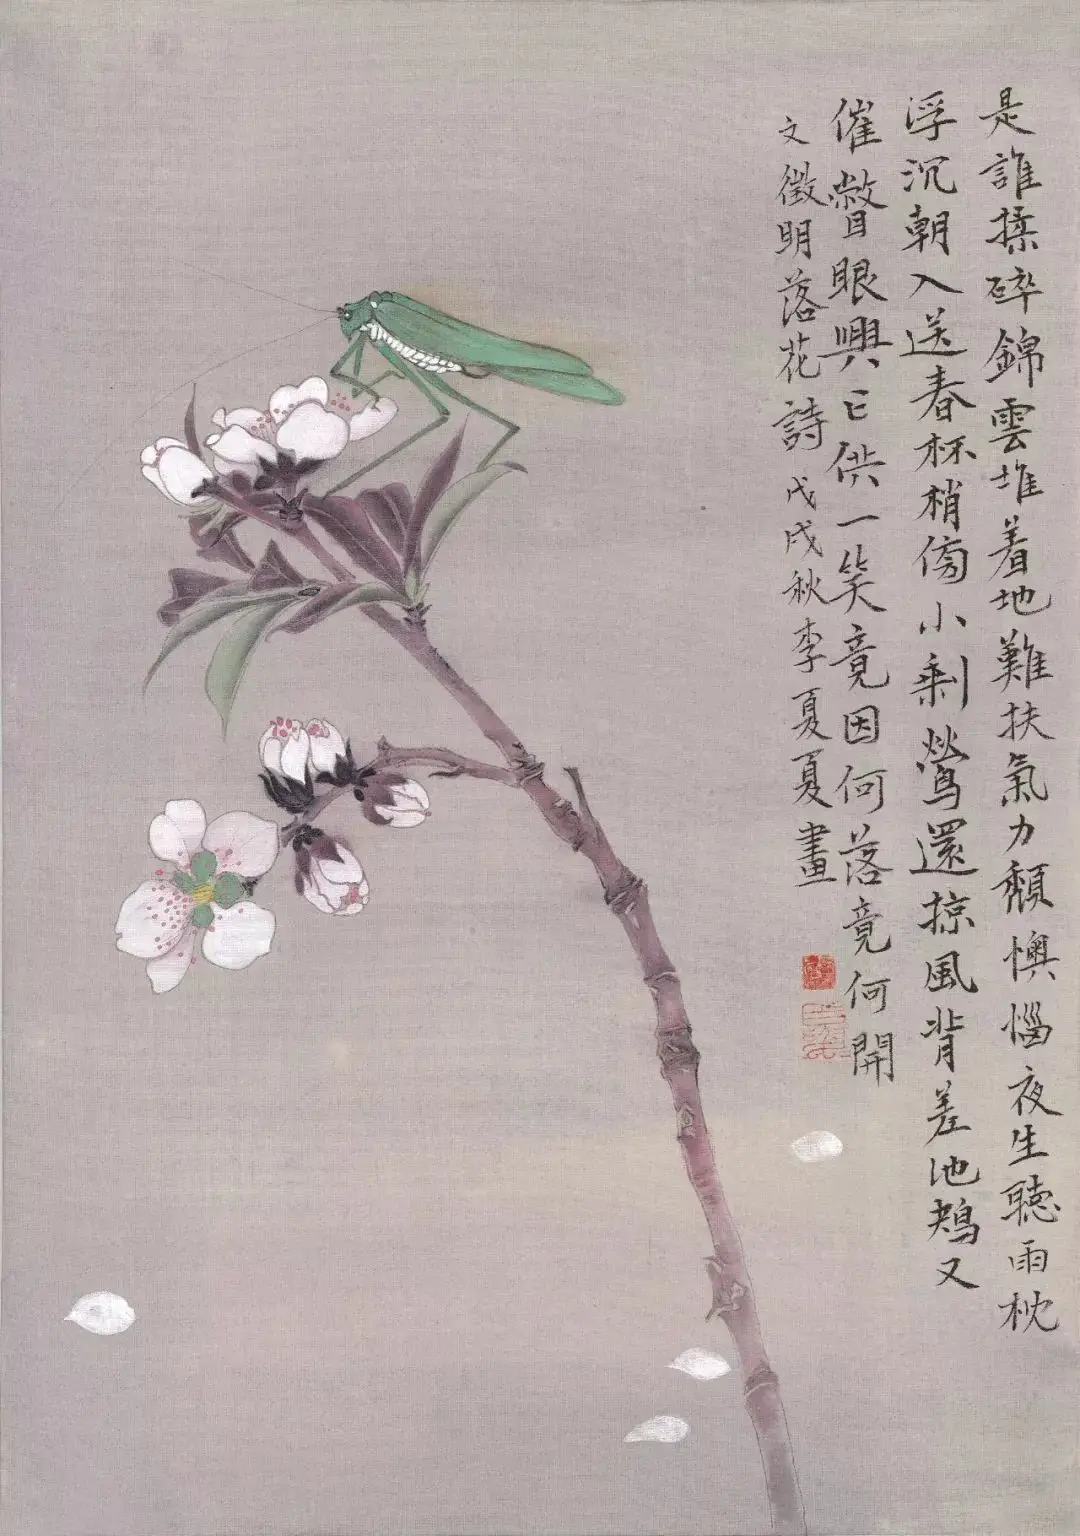 是誰揉碎錦雲堆着地難扶氣力頹懊惱夜生聽雨枕
浮沉朝入送春杯梢傍小剩鶯還掠風背差池鴂又
催瞥眼興亡供一笑竟因何落竟何開
文徵明落花詩戊戌秋李夏夏畫